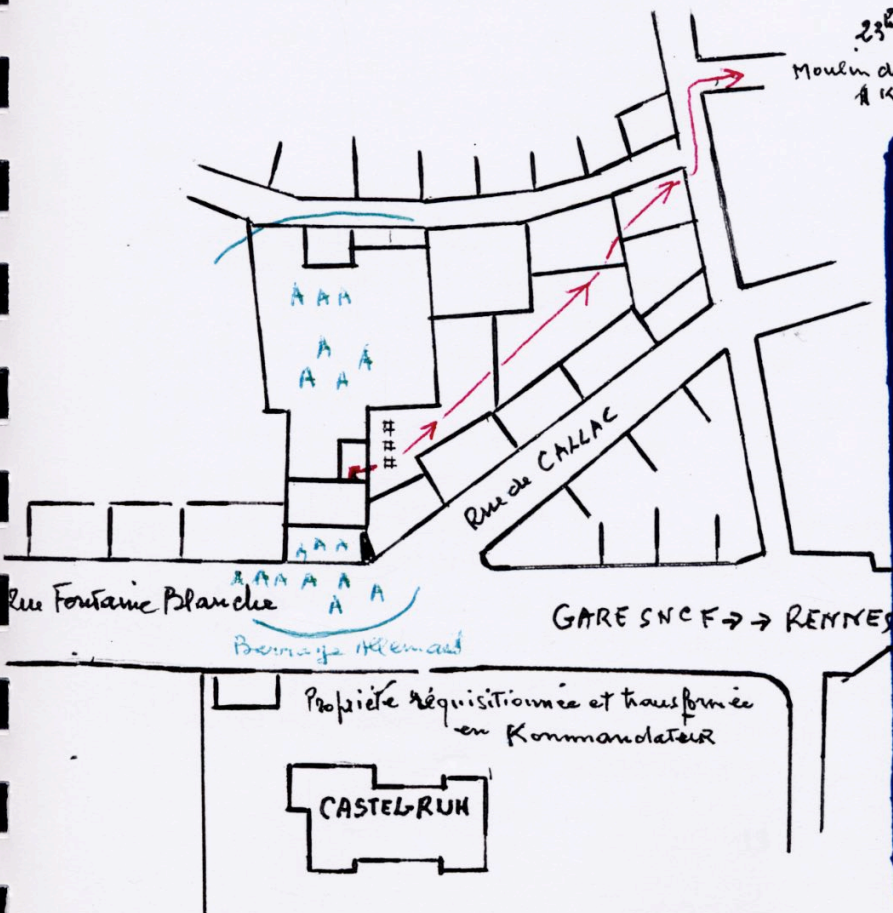 23
Moulin d
Rue de CALLAC
Rue Fontaine Blanche
GARE SNCF → → RENNES
Barrage Allemand
Propriété réquisitionnée et transformée
en Kommandatur
CASTEL-RUN